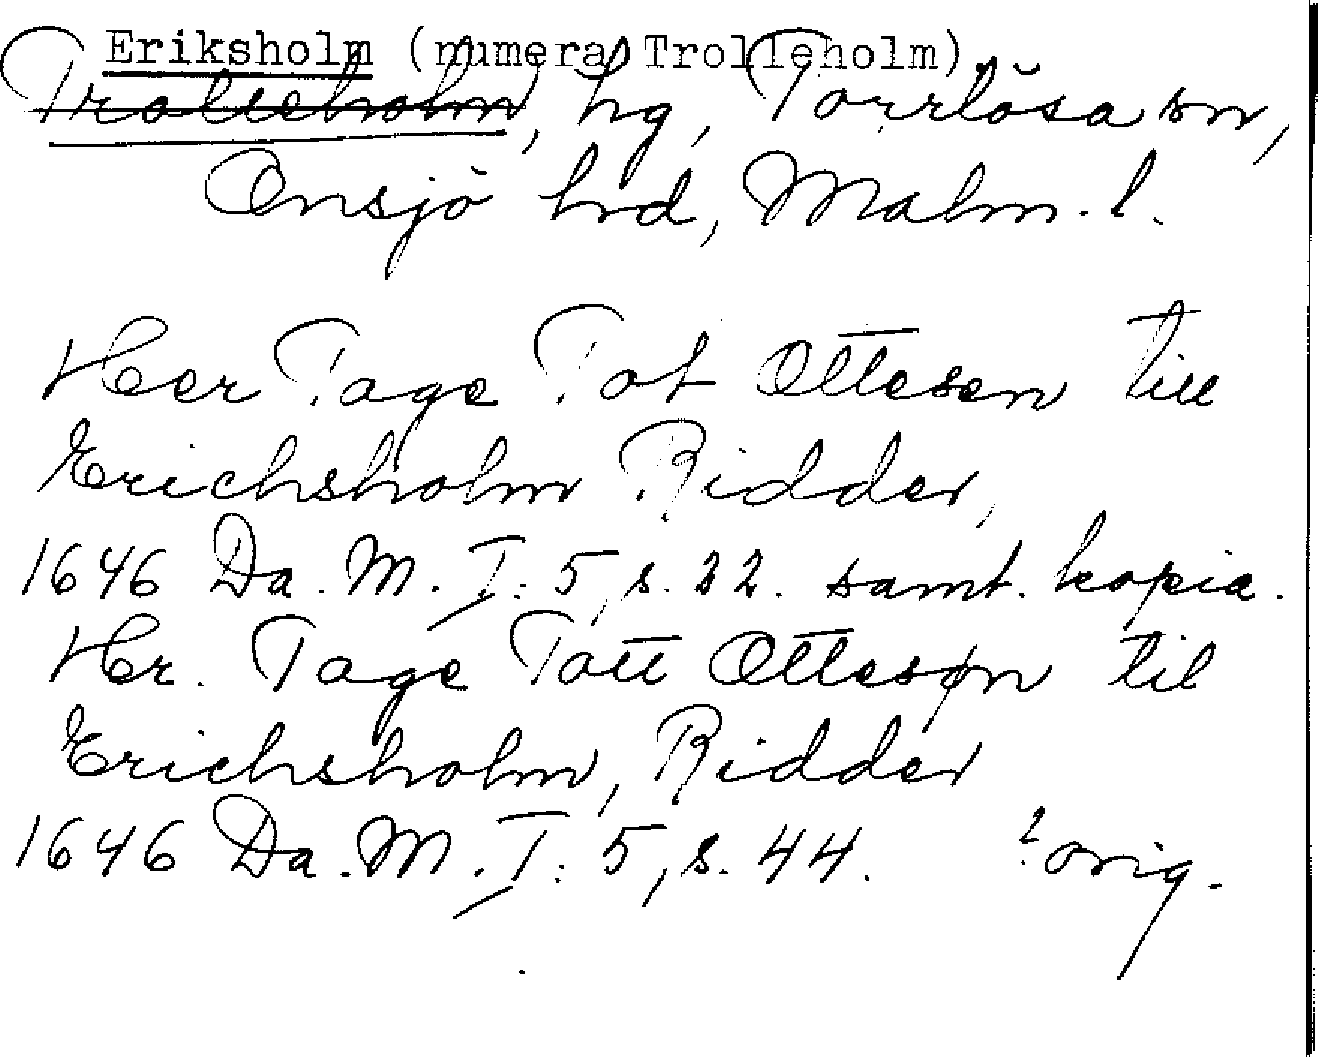 Eriksholm (numera Trolleholm)
Trolleholm, hg, Torrlösa sn,
Onsjö hrd, Malm. l.
Heer Tage Tot Ottesen till
Erichsholm Ridder,
1646 Da. M. I: 5, s. 22. samt. kopia.
Hr. Tage Tott Ottesøn til
Erichsholm, Ridder
1646 Da. M. I: 5, s. 44. ? orig.